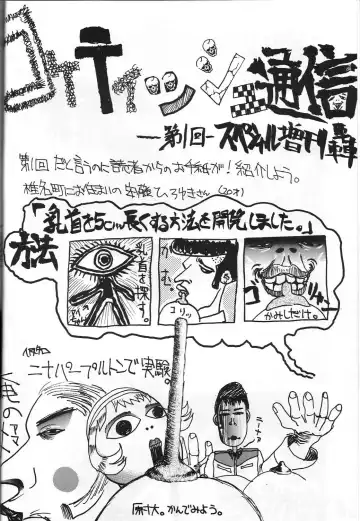 コイティッシュ通信
—第1回—スペシャル増刊轟
第1回だと言うのに読者からのお手紙が!紹介しよう。
椎名町にお住まいの
ひろゆきさん(20才)
「乳首を5cm長くする方法を開発しました。」
方法
乳首を探す。
かむ。
コリッ
ゴ
かみしだけ。
ニナパープルトンで実験。
ニーナァ
原寸大。かんでみよう。